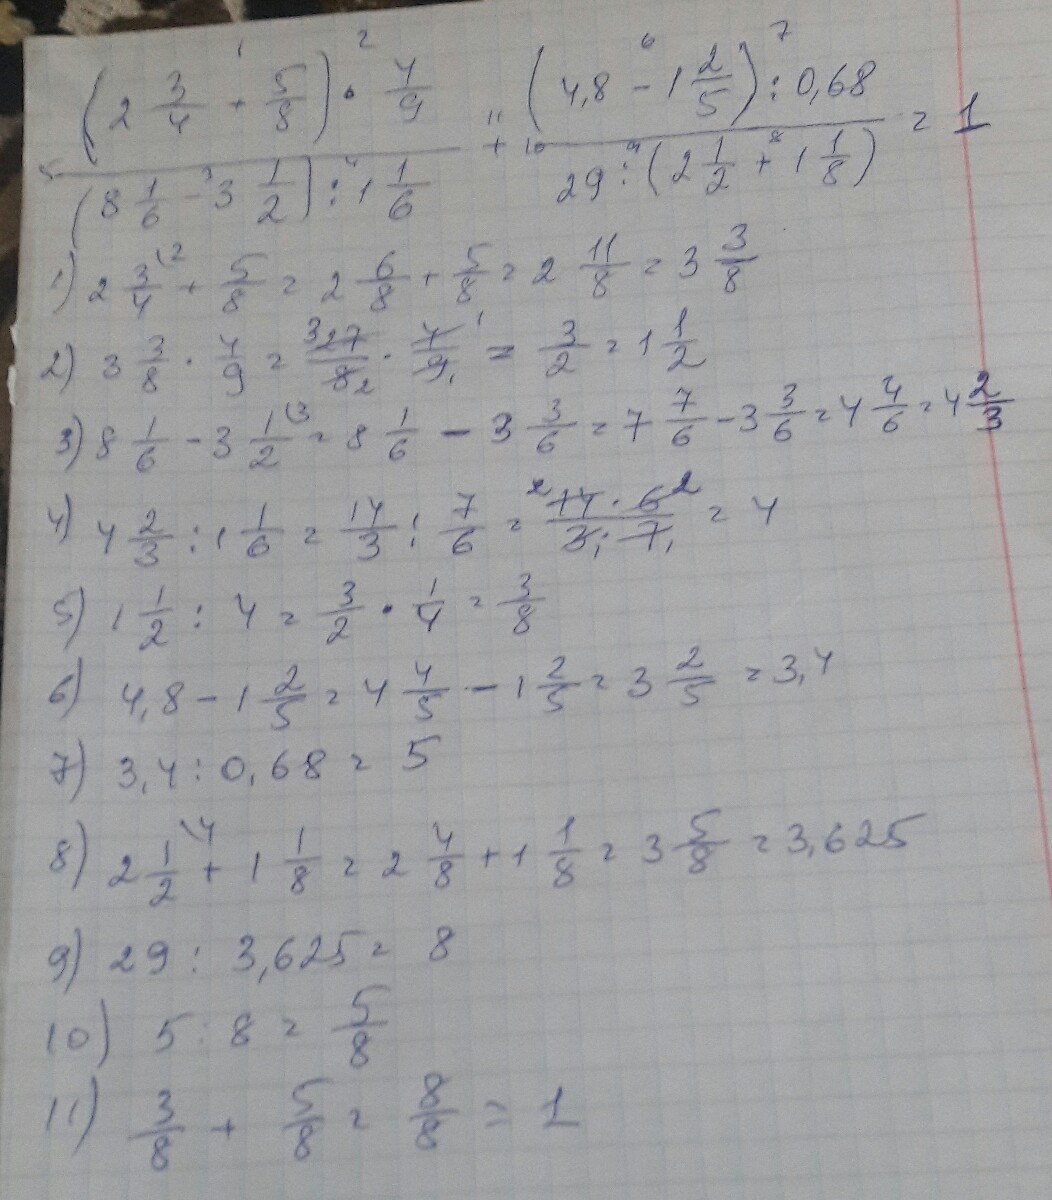 ((2 3/4 + 5/8) · 4/9) / ((8 1/6 - 3 1/2) : 1 1/6) + ((4,8 - 1 2/5) : 0,68) / (29 : (2 1/2 + 1 1/8)) = 1
1) 2 3/4 \2 + 5/8 = 2 6/8 + 5/8 = 2 11/8 = 3 3/8
2) 3 3/8 · 4/9 = 27/8 · 4/9 = 3/2 = 1 1/2
3) 8 1/6 - 3 1/2 \3 = 8 1/6 - 3 3/6 = 7 7/6 - 3 3/6 = 4 4/6 = 4 2/3
4) 4 2/3 : 1 1/6 = 14/3 : 7/6 = 14 · 6 / 3 · 7 = 4
5) 1 1/2 : 4 = 3/2 · 1/4 = 3/8
6) 4,8 - 1 2/5 = 4 4/5 - 1 2/5 = 3 2/5 = 3,4
7) 3,4 : 0,68 = 5
8) 2 1/2 \4 + 1 1/8 = 2 4/8 + 1 1/8 = 3 5/8 = 3,625
9) 29 : 3,625 = 8
10) 5 : 8 = 5/8
11) 3/8 + 5/8 = 8/8 = 1